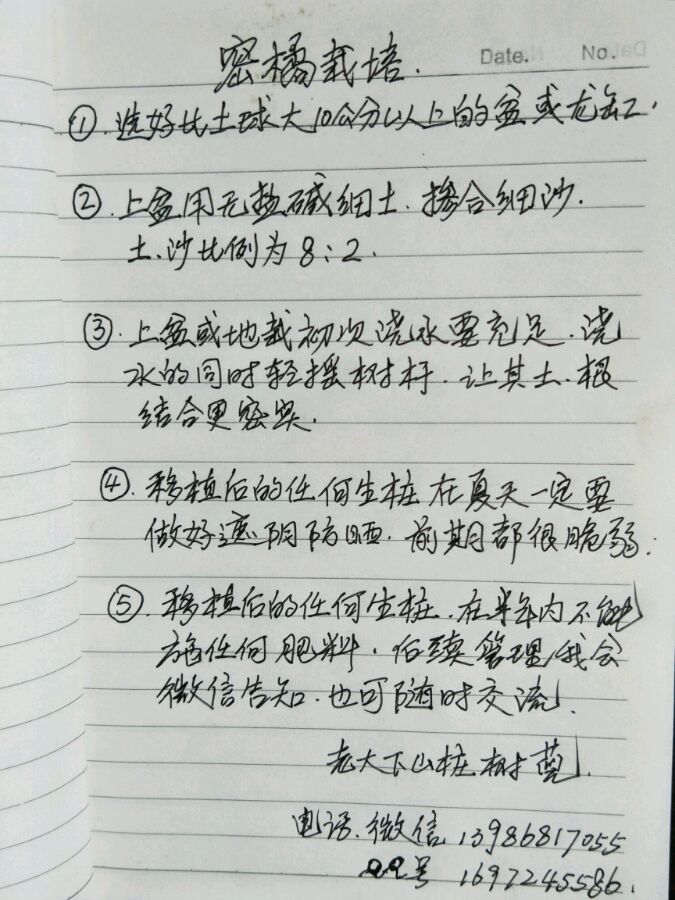 密橘栽培.
Date. No.
①.选好比土球大10公分以上的盆或龙缸.
②.上盆用无盐碱细土.掺合细沙.
土.沙比例为8:2.
③.上盆或地栽初次浇水要充足.浇
水的同时轻摇树杆.让其土.根
结合更密实.
④.移植后的任何生桩在夏天一定要
做好遮阴防晒.前期都很脆弱.
⑤.移植后的任何生桩.在半年内不能
施任何肥料.后续管理我会
微信告知.也可随时交流.
老大下山桩树苑.
电话.微信 13986817055
QQ号 1697245586.